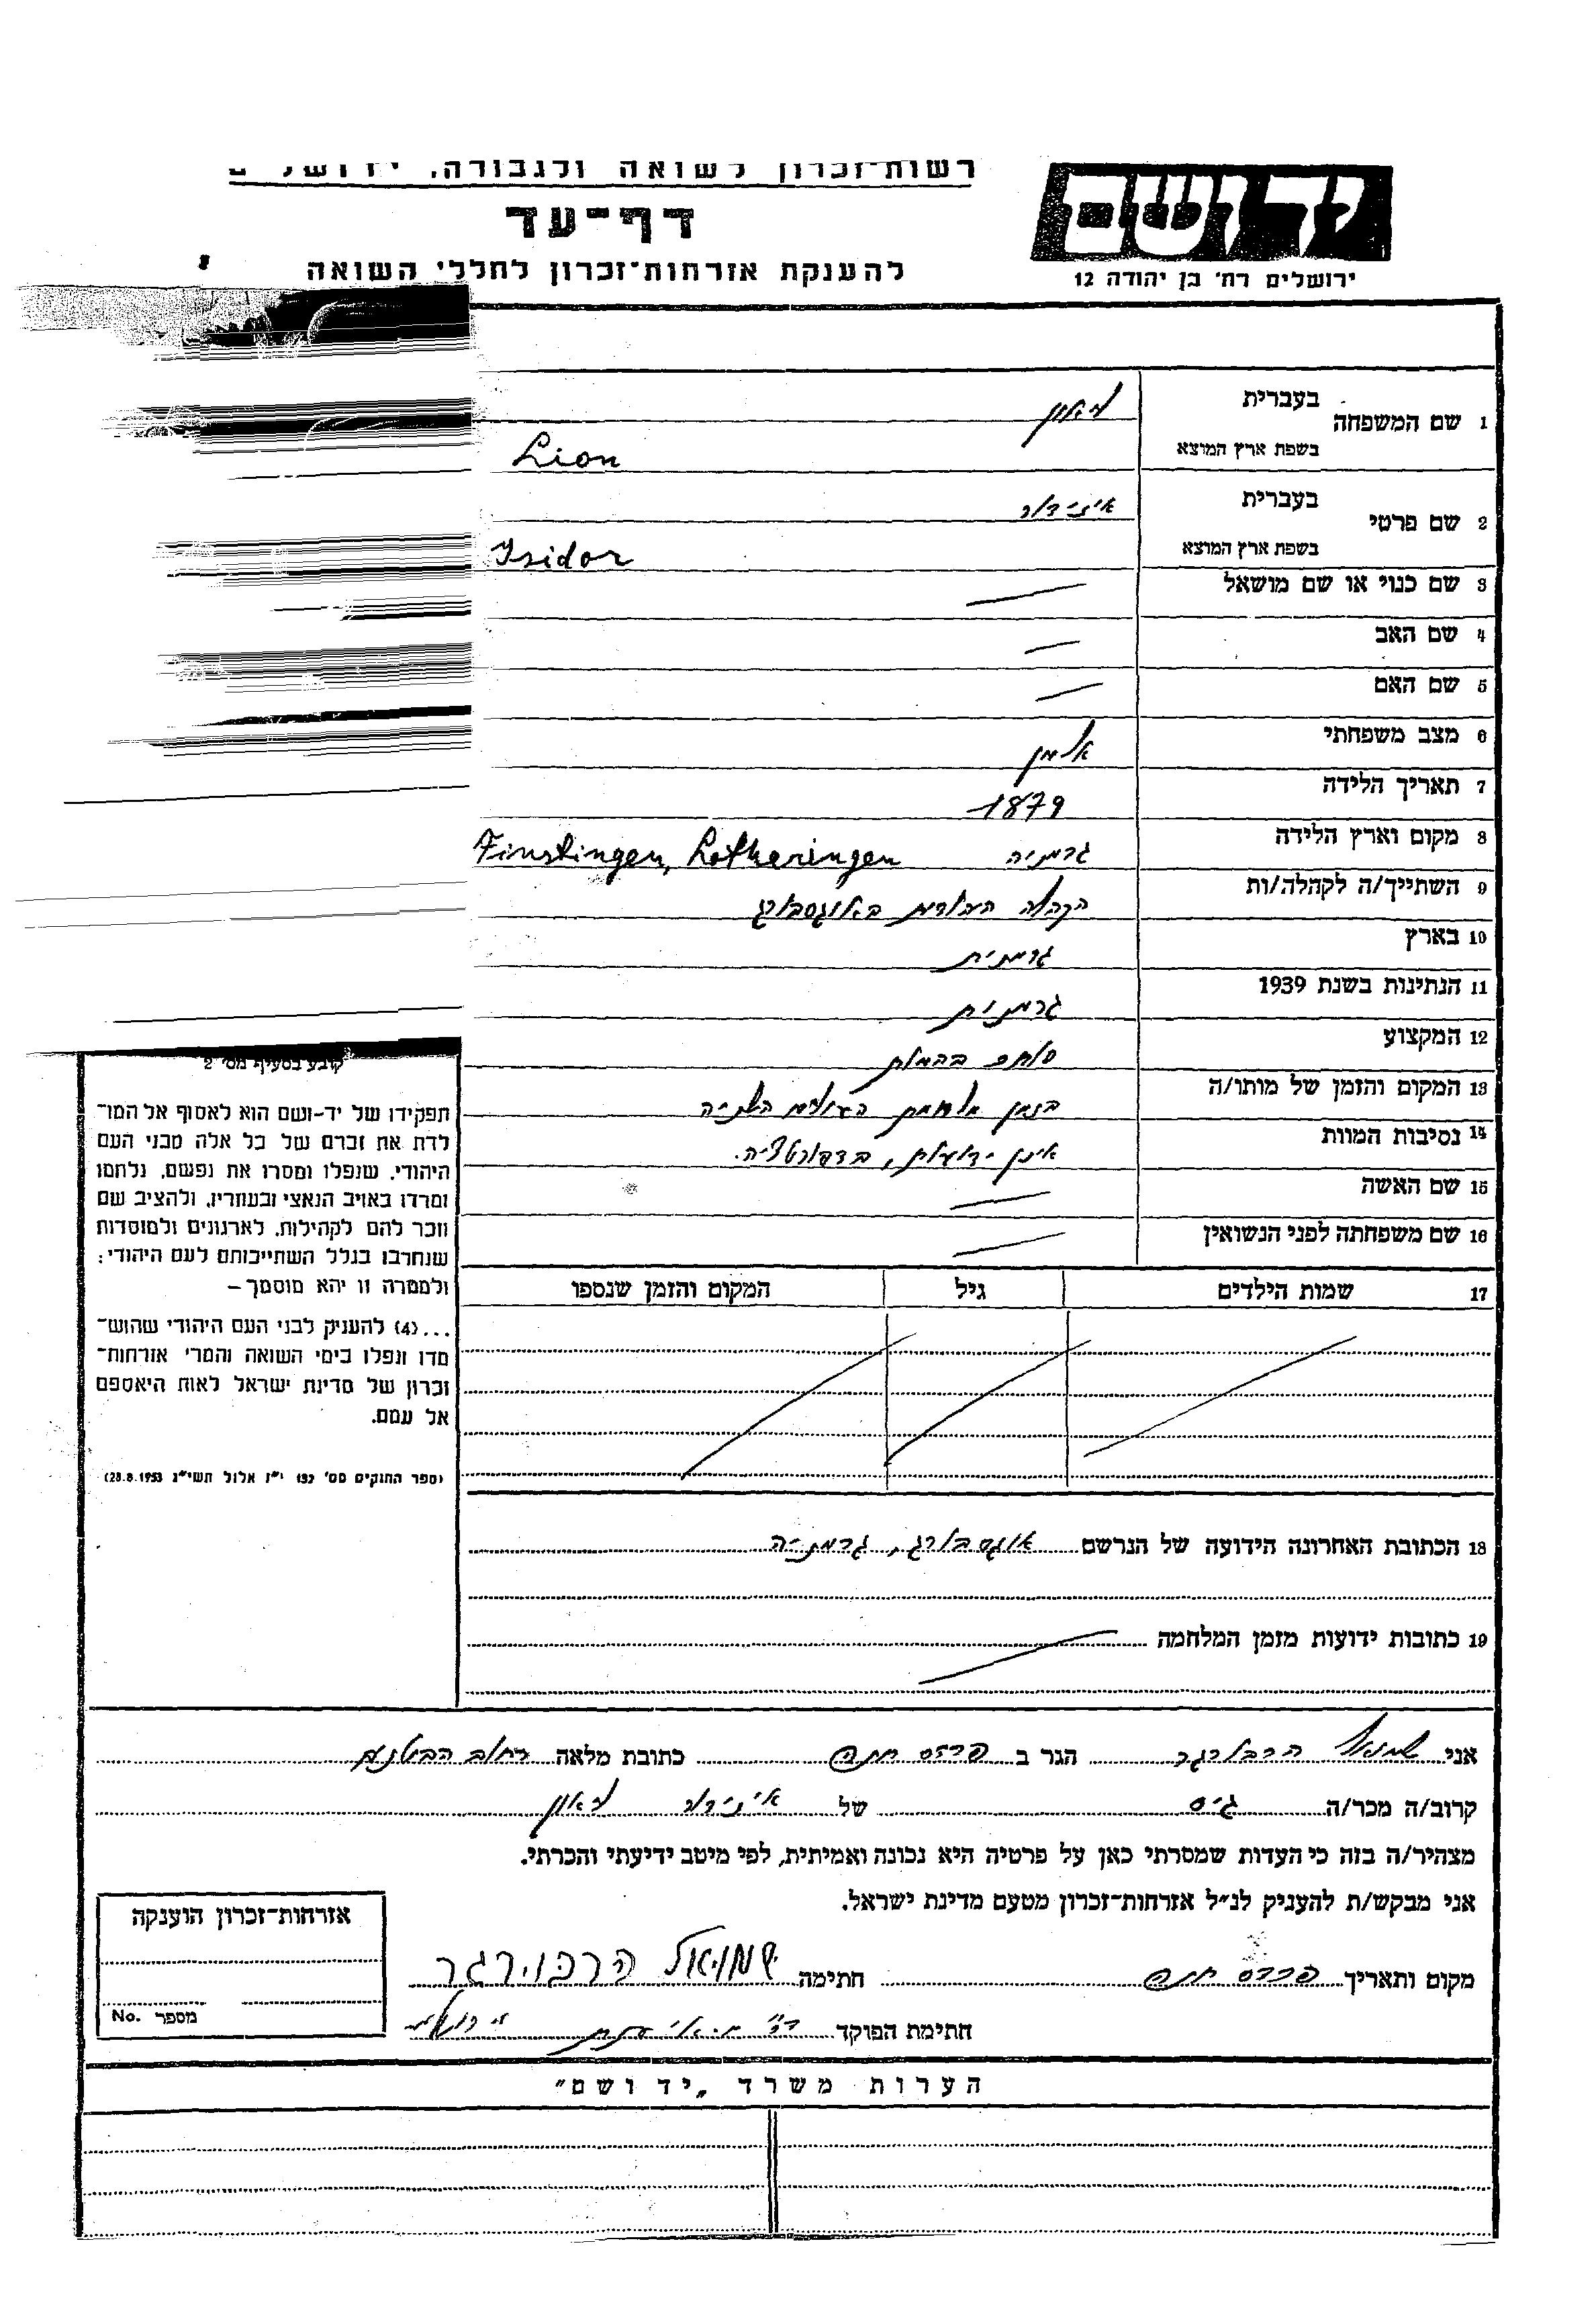 רשות־זכרון לשואה ולגבורה, ירושלים
יד ושם
דף־עד
להענקת אזרחות־זכרון לחללי השואה
ירושלים רח' בן יהודה 12
1 שם המשפחה בעברית ליאון
בשפת ארץ המוצא Lion
2 שם פרטי בעברית איזידור
בשפת ארץ המוצא Isidor
3 שם כנוי או שם מושאל —
4 שם האב —
5 שם האם —
6 מצב משפחתי אלמן
7 תאריך הלידה 1879
8 מקום וארץ הלידה גרמניה Finstingen, Lotheringen
9 השתייך/ה לקהלה/ות הקהלה היהודית באוגסבורג
10 בארץ גרמנית
11 הנתינות בשנת 1939 גרמנית
12 המקצוע סוחר בהמות
13 המקום והזמן של מותו/ה בזמן מלחמת העולם השניה
14 נסיבות המוות אינן ידועות, בדפורטציה.
15 שם האשה —
16 שם משפחתה לפני הנשואין —
17 שמות הילדים גיל המקום והזמן שנספו
קובע בסעיף מס' 2
תפקידו של יד-ושם הוא לאסוף אל המו־
לדת את זכרם של כל אלה מבני העם
היהודי, שנפלו ומסרו את נפשם, נלחמו
ומרדו באויב הנאצי ובעוזריו, ולהציב שם
וזכר להם לקהילות, לארגונים ולמוסדות
שנחרבו בגלל השתייכותם לעם היהודי;
ולמטרה זו יהא מוסמך –
...(4) להעניק לבני העם היהודי שהוש־
מדו ונפלו בימי השואה והמרי אזרחות־
זכרון של מדינת ישראל לאות היאספם
אל עמם.
(ספר החוקים מס' 132 י"ז אלול תשי"ג 28.8.1953)
18 הכתובת האחרונה הידועה של הנרשם אוגסבורג, גרמניה
19 כתובות ידועות מזמן המלחמה
אני שמואל הרבורגר הגר ב פרדס חנה כתובת מלאה רחוב הבוטנים
קרוב/ה מכר/ה גיס של איזידור ליאון
מצהיר/ה בזה כי העדות שמסרתי כאן על פרטיה היא נכונה ואמיתית, לפי מיטב ידיעתי והכרתי.
אני מבקש/ת להעניק לנ"ל אזרחות־זכרון מטעם מדינת ישראל.
מקום ותאריך פרדס חנה חתימה שמואל הרבורגר
חתימת הפוקד
אזרחות־זכרון הוענקה
מספר No.
הערות משרד „יד ושם"